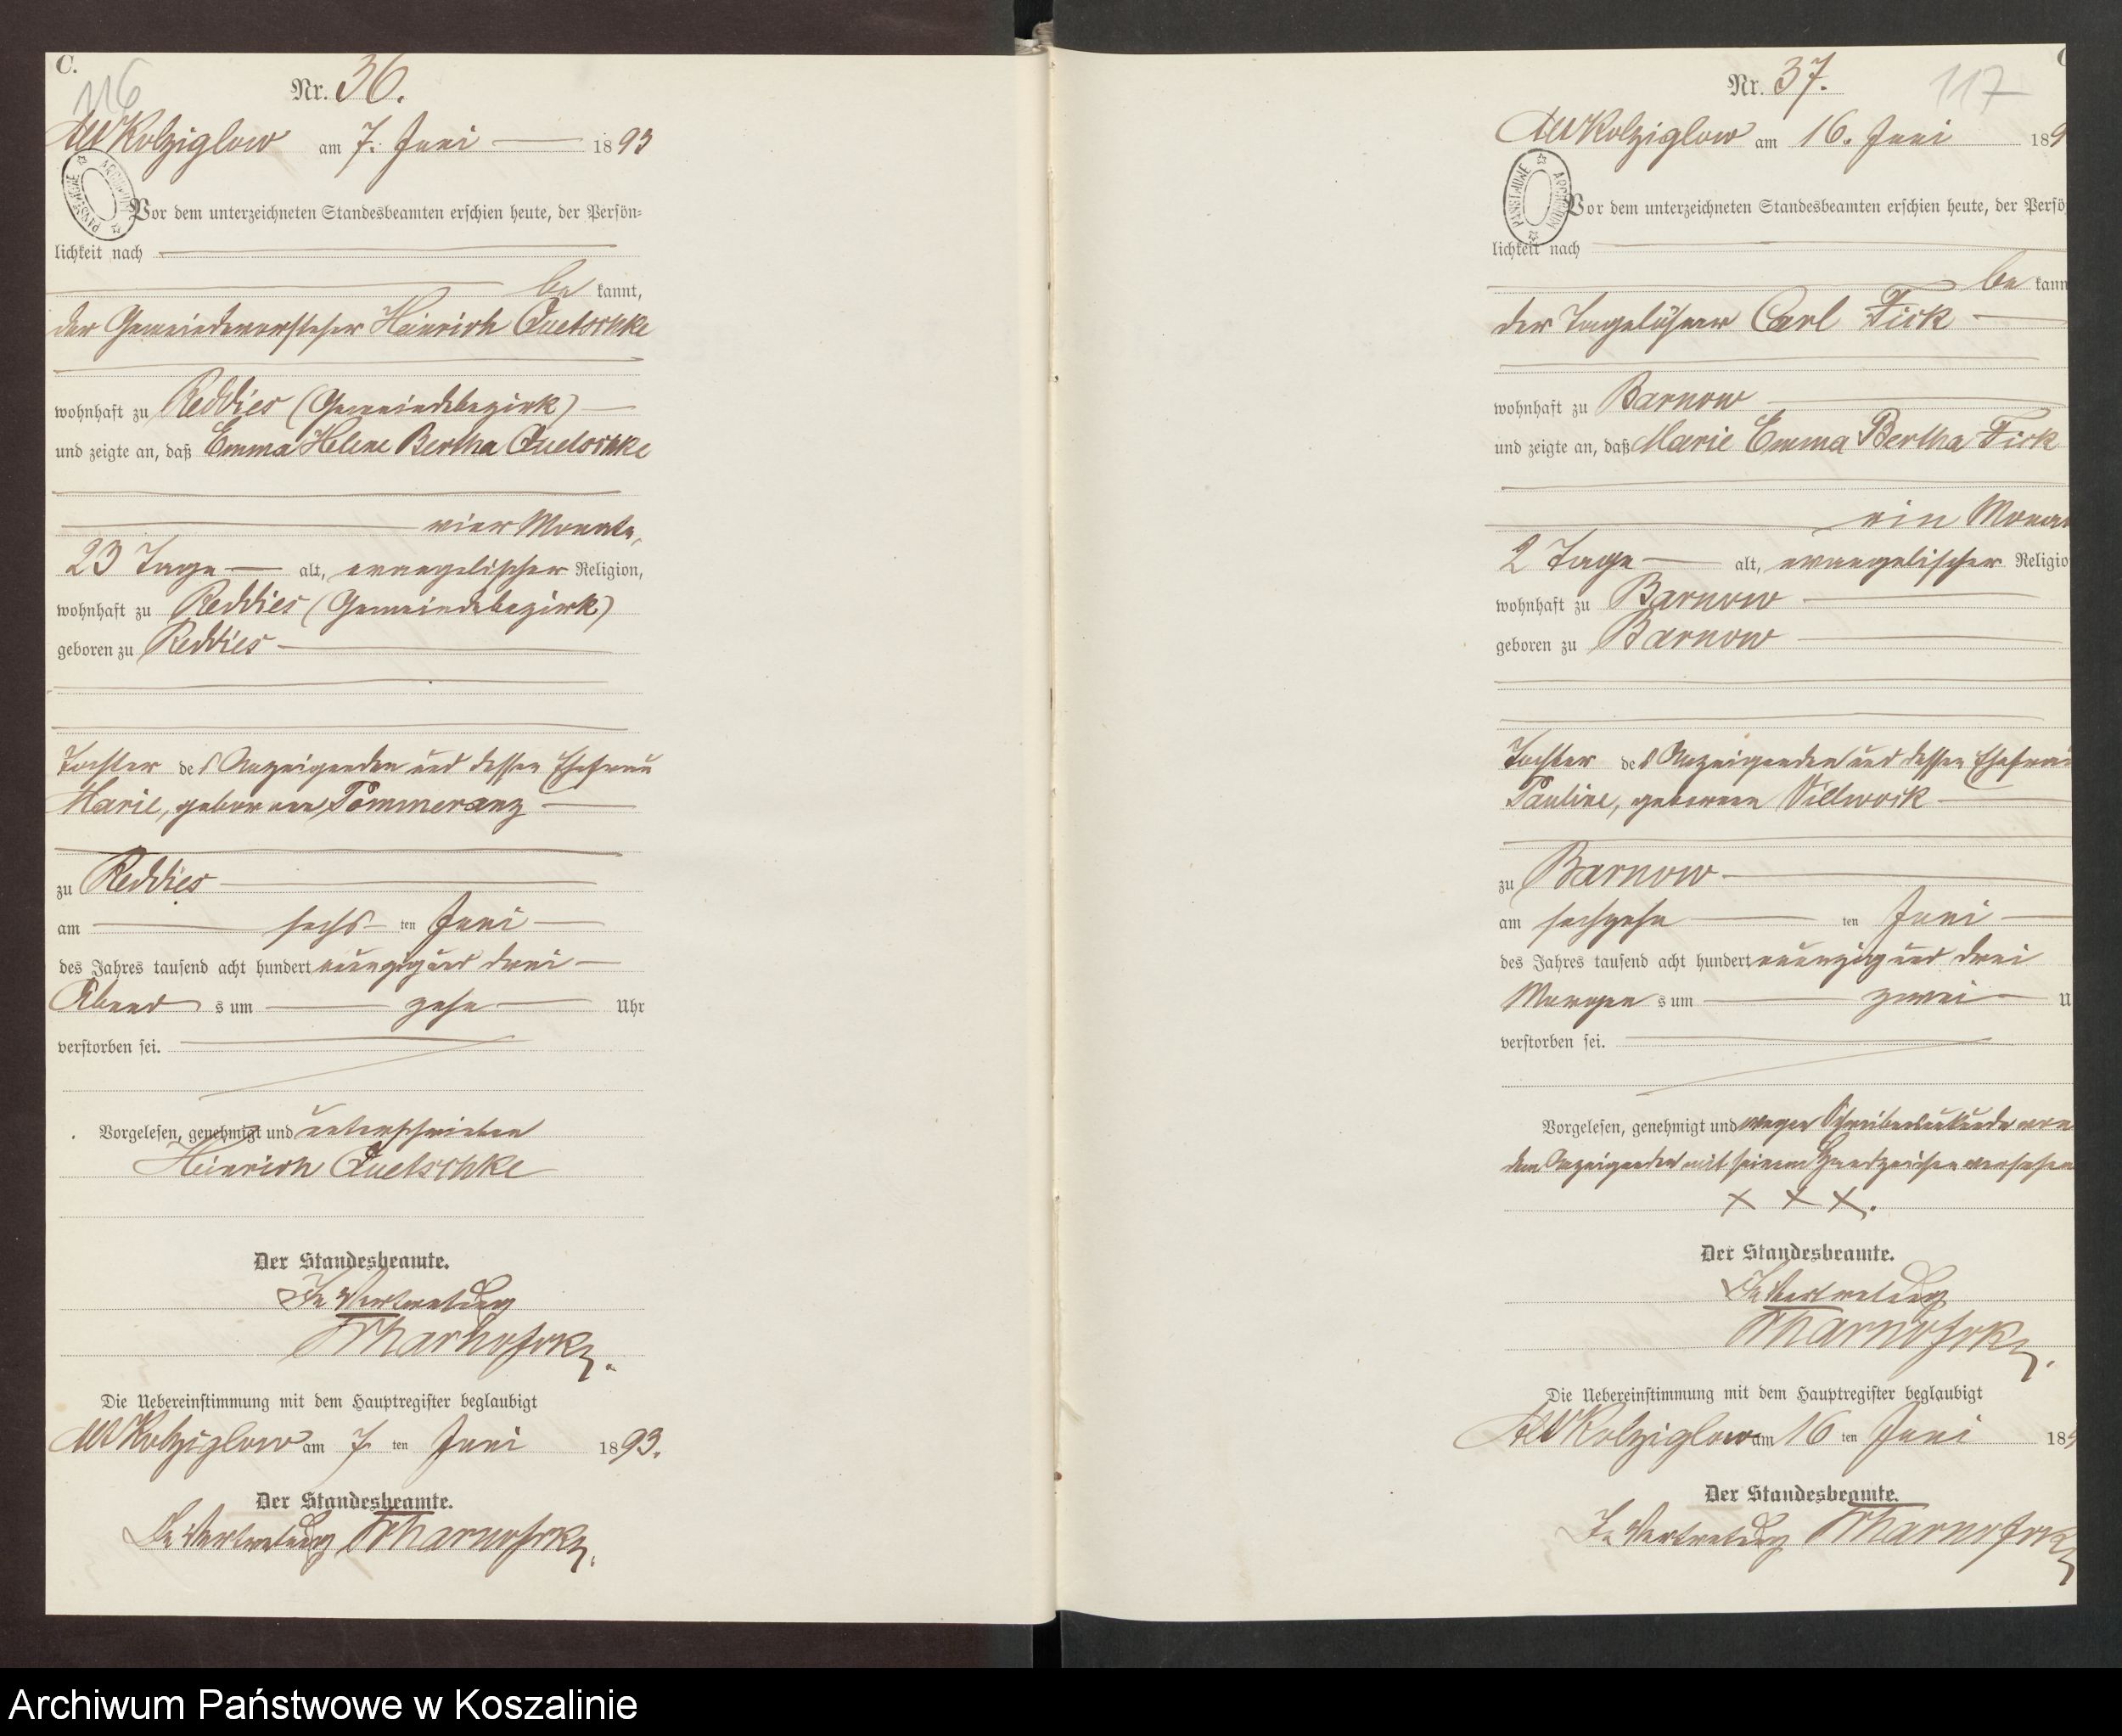 C.
116
Nr. 36.
Alt Kolziglow am 7. Juni 1893
PAŃSTWOWE ARCHIWUM
Vor dem unterzeichneten Standesbeamten erschien heute, der Persön=
lichkeit nach
be kannt,
der Gemeindevorsteher Heinrich Quetschke
wohnhaft zu Reddies (Gemeindebezirk)
und zeigte an, daß Emma Helene Bertha Quetschke
vier Monate,
23 Tage alt, evangelischer Religion,
wohnhaft zu Reddies (Gemeindebezirk)
geboren zu Reddies
Tochter des Anzeigenden und dessen Ehefrau
Marie, geborenen Pommeranz
zu Reddies
am sechs ten Juni
des Jahres tausend acht hundert neunzig und drei
Abend s um zehn Uhr
verstorben sei.
Vorgelesen, genehmigt und unterschrieben
Heinrich Quetschke
Der Standesbeamte.
In Vertretung
Die Uebereinstimmung mit dem Hauptregister beglaubigt
Alt Kolziglow am 7 ten Juni 1893.
Der Standesbeamte.
In Vertretung
Nr. 37.
117
Alt Kolziglow am 16. Juni 189
PAŃSTWOWE ARCHIWUM
Vor dem unterzeichneten Standesbeamten erschien heute, der Persö
lichkeit nach
be kann
der Tagelöhner Carl Fick
wohnhaft zu Barnow
und zeigte an, daß Marie Emma Bertha Fick
ein Monat
2 Tage alt, evangelischer Religio
wohnhaft zu Barnow
geboren zu Barnow
Tochter des Anzeigenden und dessen Ehefrau
Pauline, geborenen Villwock
zu Barnow
am sechzehn ten Juni
des Jahres tausend acht hundert neunzig und drei
Morgen s um zwei U
verstorben sei.
Vorgelesen, genehmigt und wegen Schreibensunkunde von
dem Anzeigenden mit seinem Handzeichen versehen
X X X.
Der Standesbeamte.
In Vertretung
Die Uebereinstimmung mit dem Hauptregister beglaubigt
Alt Kolziglow am 16 ten Juni 189
Der Standesbeamte.
In Vertretung
Archiwum Państwowe w Koszalinie